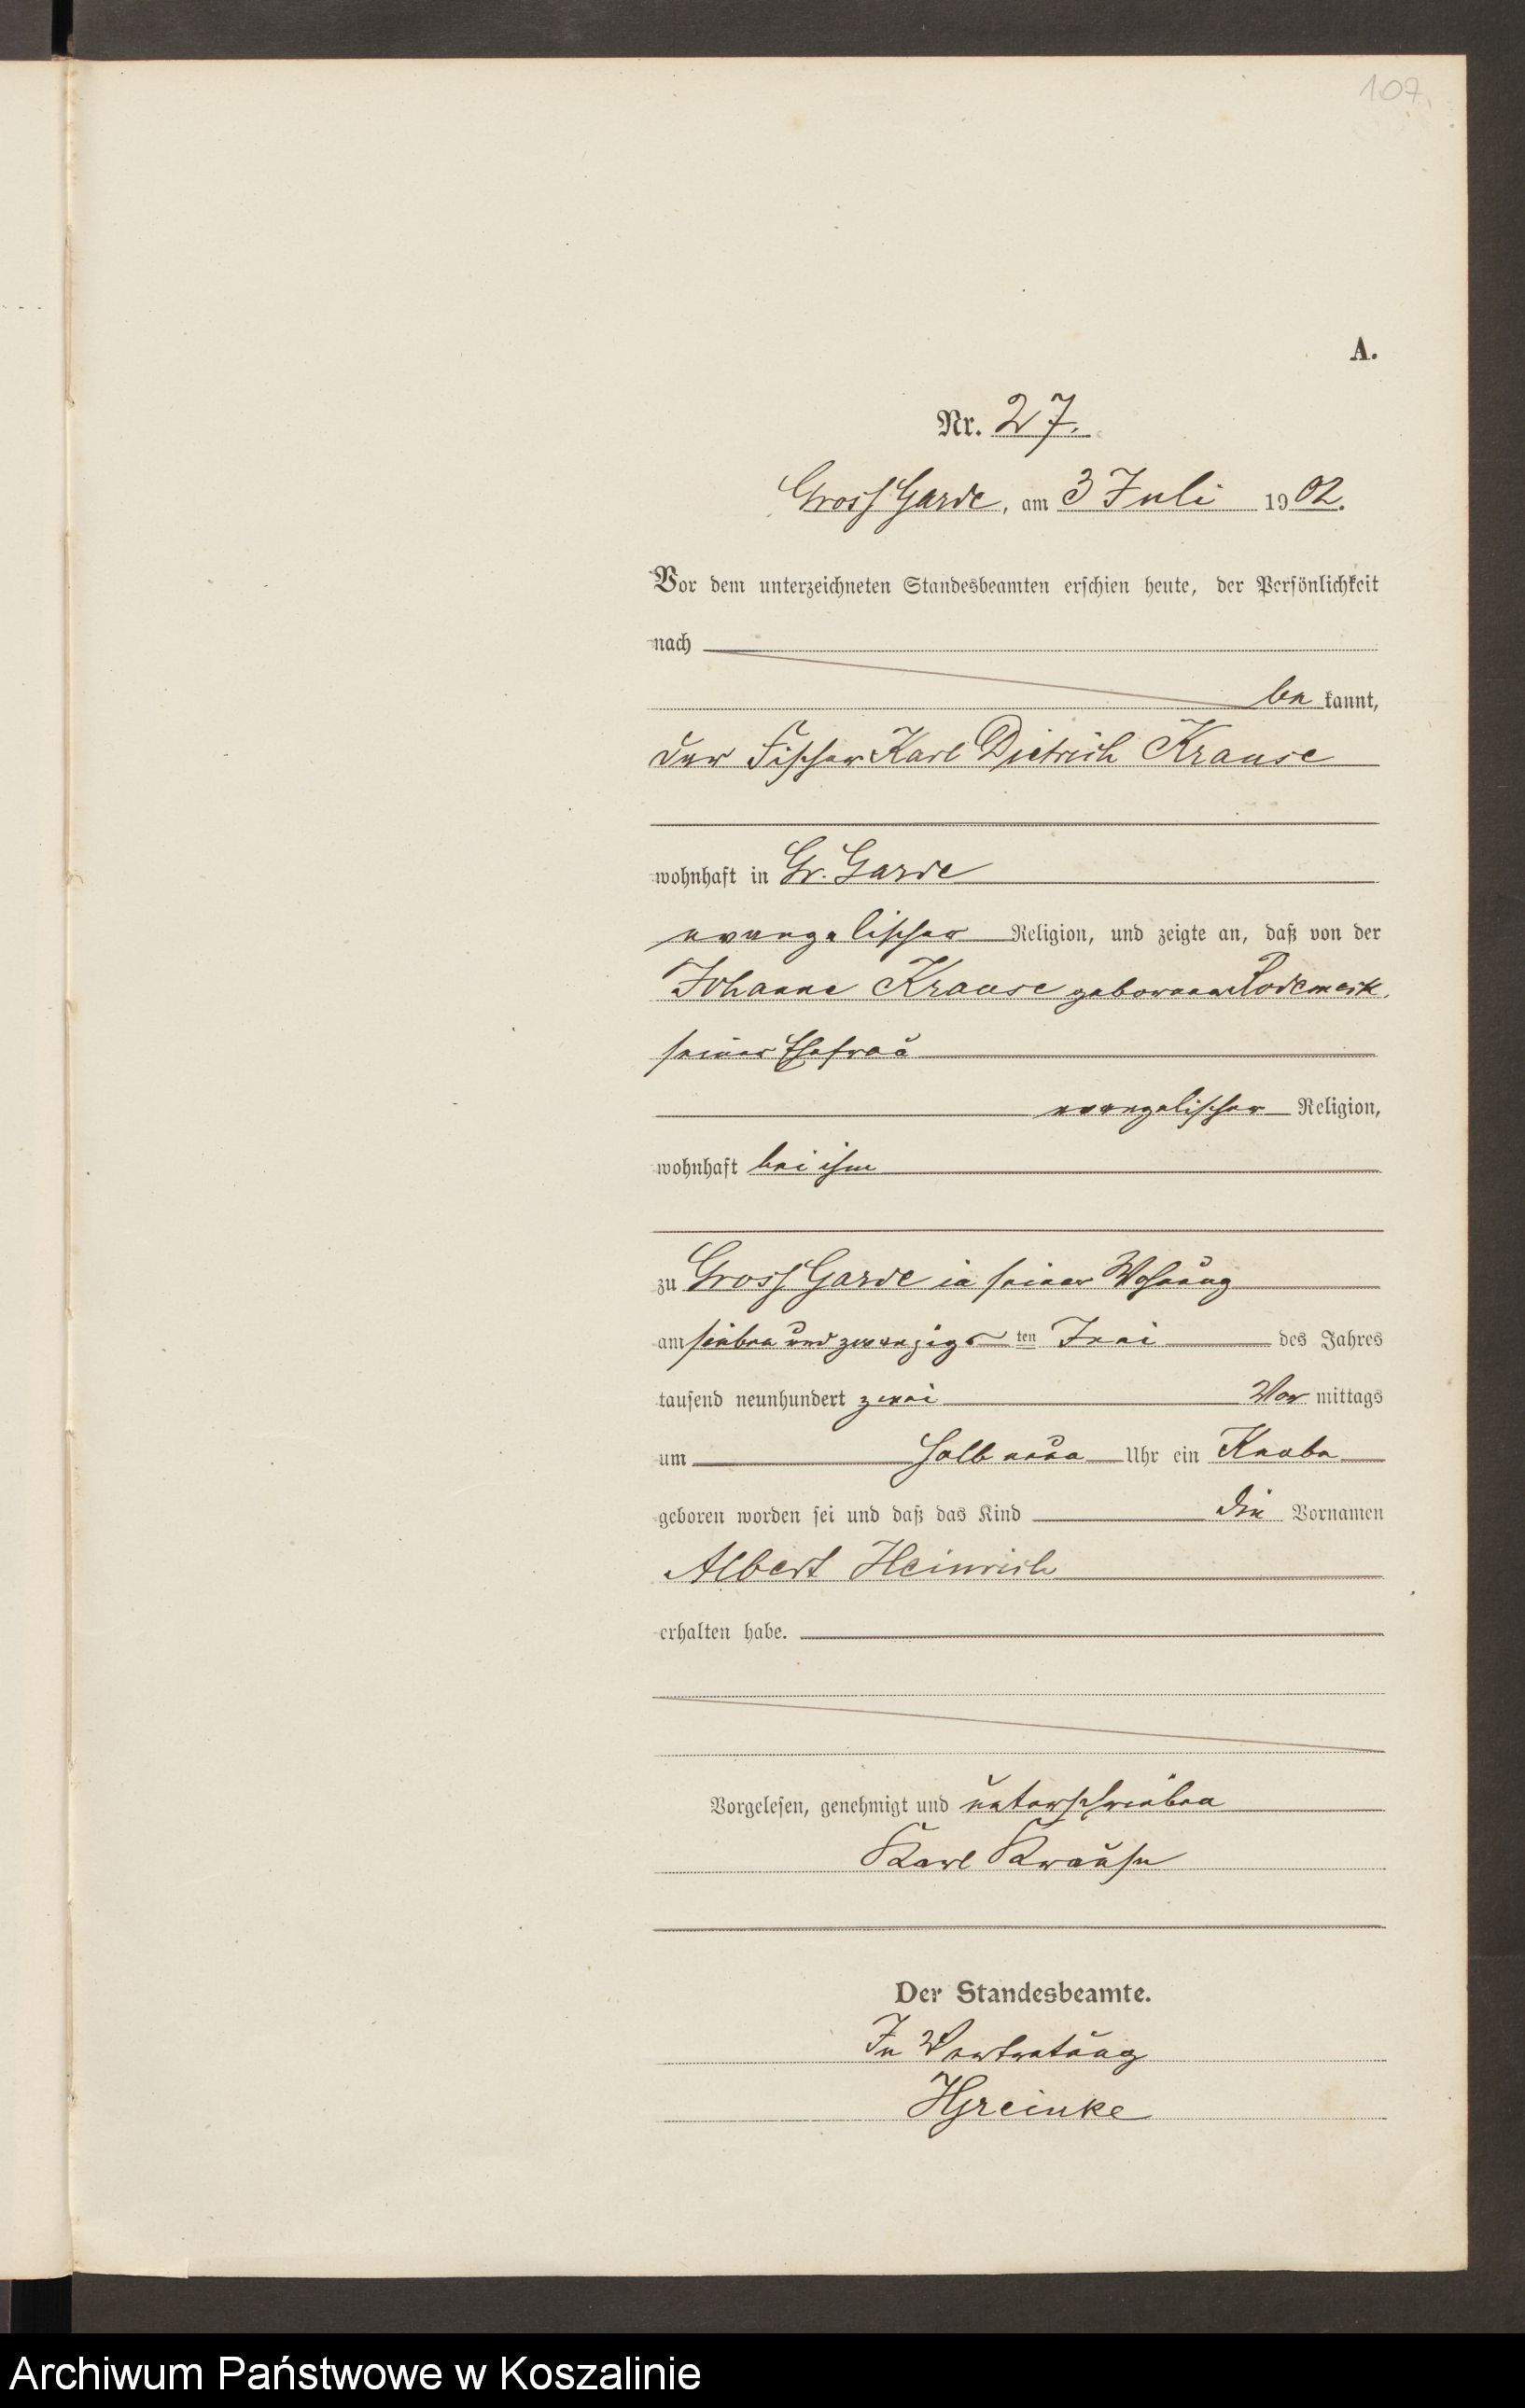 107.
A.
Nr. 27.
Gross Garde, am 3 Juli 1902.
Vor dem unterzeichneten Standesbeamten erschien heute, der Persönlichkeit
nach
be kannt,
der Fischer Karl Dietrich Krause
wohnhaft in Gr. Garde
evangelischer Religion, und zeigte an, daß von der
Johanne Krause geborenen
seiner Ehefrau
evangelischer Religion,
wohnhaft bei ihm
zu Gross Garde in seiner Wohnung
am sieben und zwanzigs ten Juni des Jahres
tausend neunhundert zwei Vor mittags
um halb neun Uhr ein Knabe
geboren worden sei und daß das Kind die Vornamen
Albert Heinrich
erhalten habe.
Vorgelesen, genehmigt und unterschrieben
Karl Krause
Der Standesbeamte.
In Vertretung
HGreinke
Archiwum Państwowe w Koszalinie